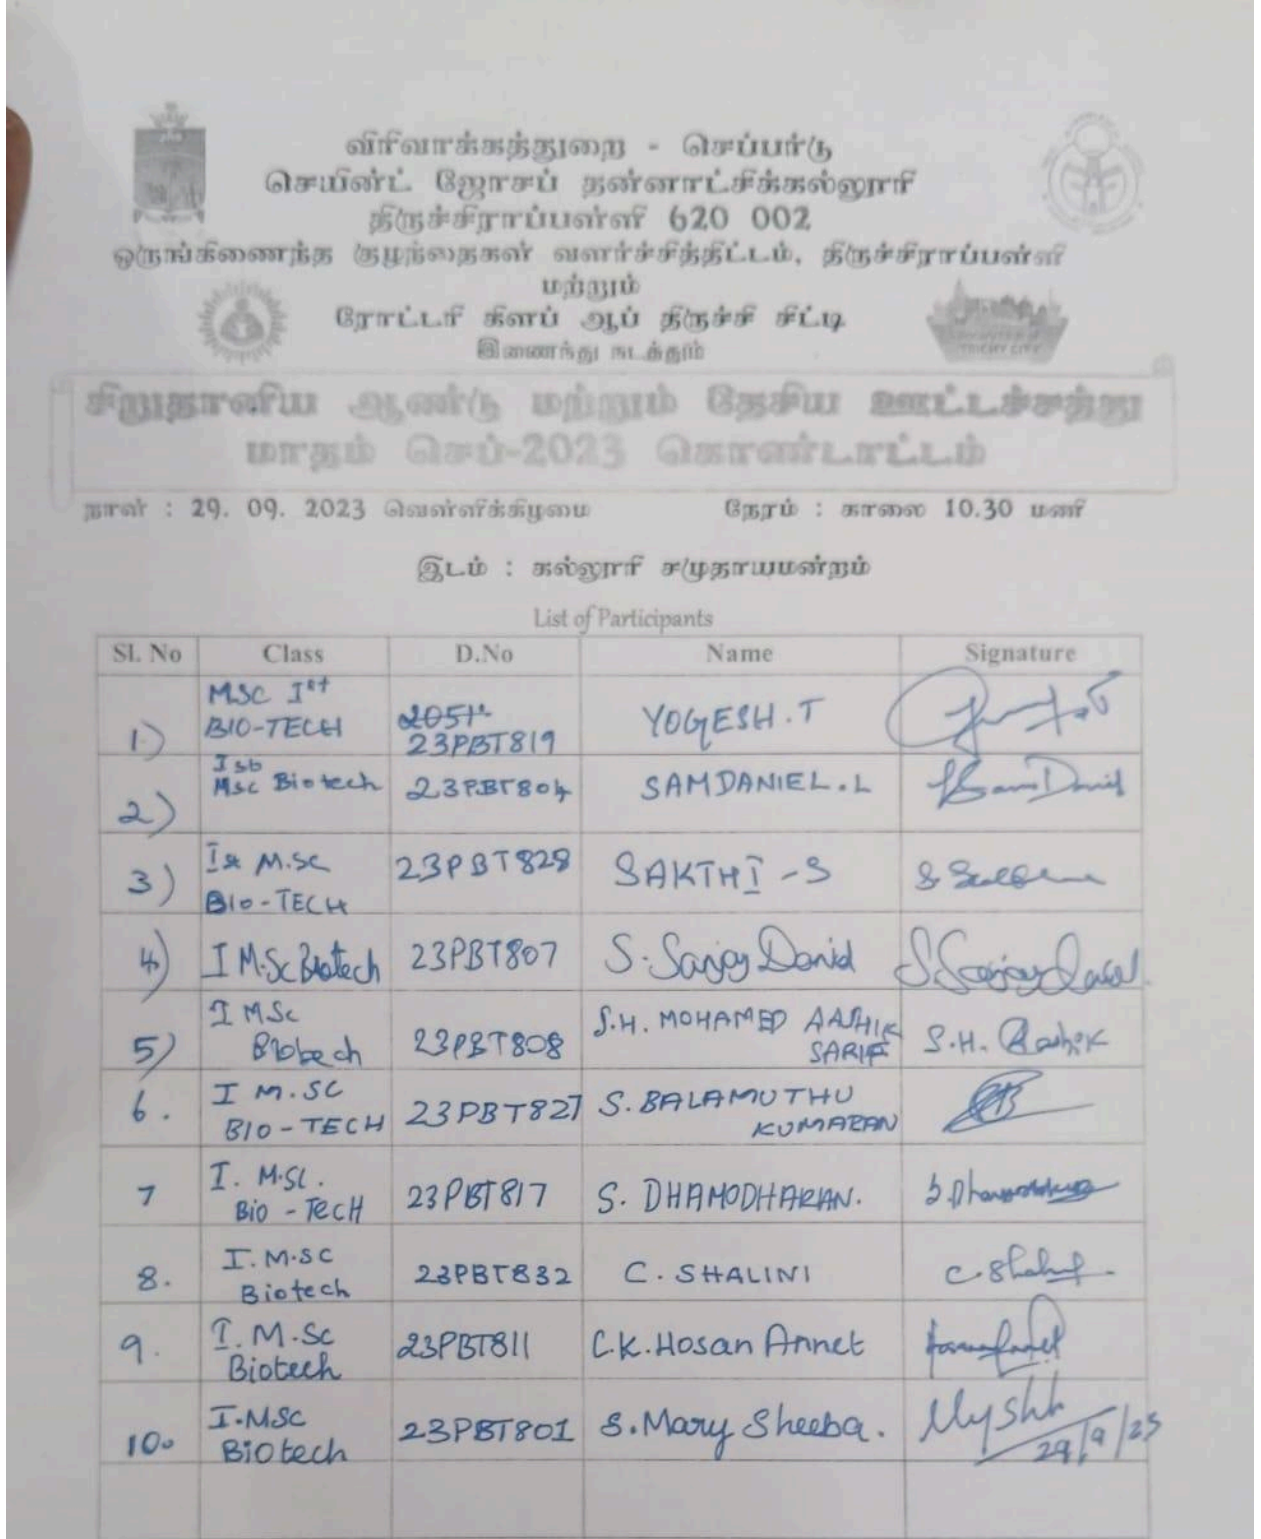 விரிவாக்கத்துறை - செப்பர்டு
செயின்ட் ஜோசப் தன்னாட்சிக்கல்லூரி
திருச்சிராப்பள்ளி 620 002
ஒருங்கிணைந்த குழந்தைகள் வளர்ச்சித்திட்டம், திருச்சிராப்பள்ளி
மற்றும்
ரோட்டரி கிளப் ஆப் திருச்சி சிட்டி
இணைந்து நடத்தும்
TRICHY CITY
சிறுதானிய ஆண்டு மற்றும் தேசிய ஊட்டச்சத்து
மாதம் செப்-2023 கொண்டாட்டம்
நாள் : 29. 09. 2023 வெள்ளிக்கிழமை நேரம் : காலை 10.30 மணி
இடம் : கல்லூரி சமுதாயமன்றம்
List of Participants
Sl. No Class D.No Name Signature
1) MSC Ist BIO-TECH 23PBT819 YOGESH.T
2) Msc Biotech 23PBT804 SAMDANIEL.L Sam Daniel
3) Ist M.SC BIO-TECH 23PBT828 SAKTHI -S
4) I M.Sc Biotech 23PBT807 S. Sanjay David S. Sanjay David
5) I MSc Biotech 23PBT808 S.H. MOHAMED AASHIK SARIF S.H. Aashik
6. I M.SC BIO-TECH 23PBT827 S. BALAMUTHU KUMARAN
7 I. M.Sc. Bio-TecH 23PBT817 S. DHAMODHARAN.
8. I. M.SC Biotech 23PBT832 C. SHALINI
9. I. M.Sc Biotech 23PBT811 C.K. Hosan Annet
10. I. MSC BIOtech 23PBT801 S. Mary Sheeba. 29/9/23